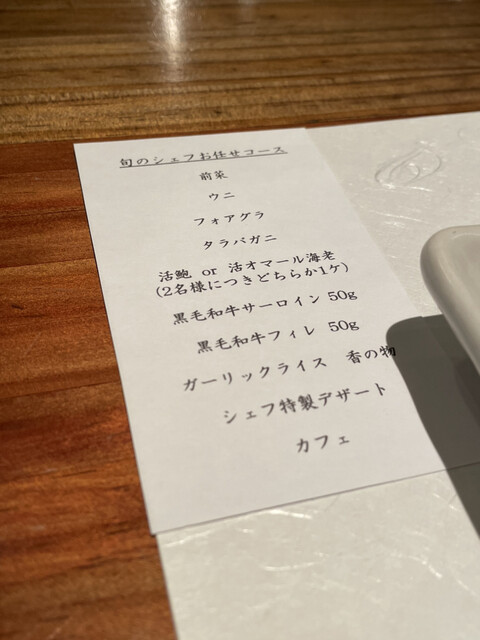 旬のシェフお任せコース
前菜
ウニ
フォアグラ
タラバガニ
活鮑 or 活オマール海老
(2名様につきどちらか1ケ)
黒毛和牛サーロイン 50g
黒毛和牛フィレ 50g
ガーリックライス 香の物
シェフ特製デザート
カフェ